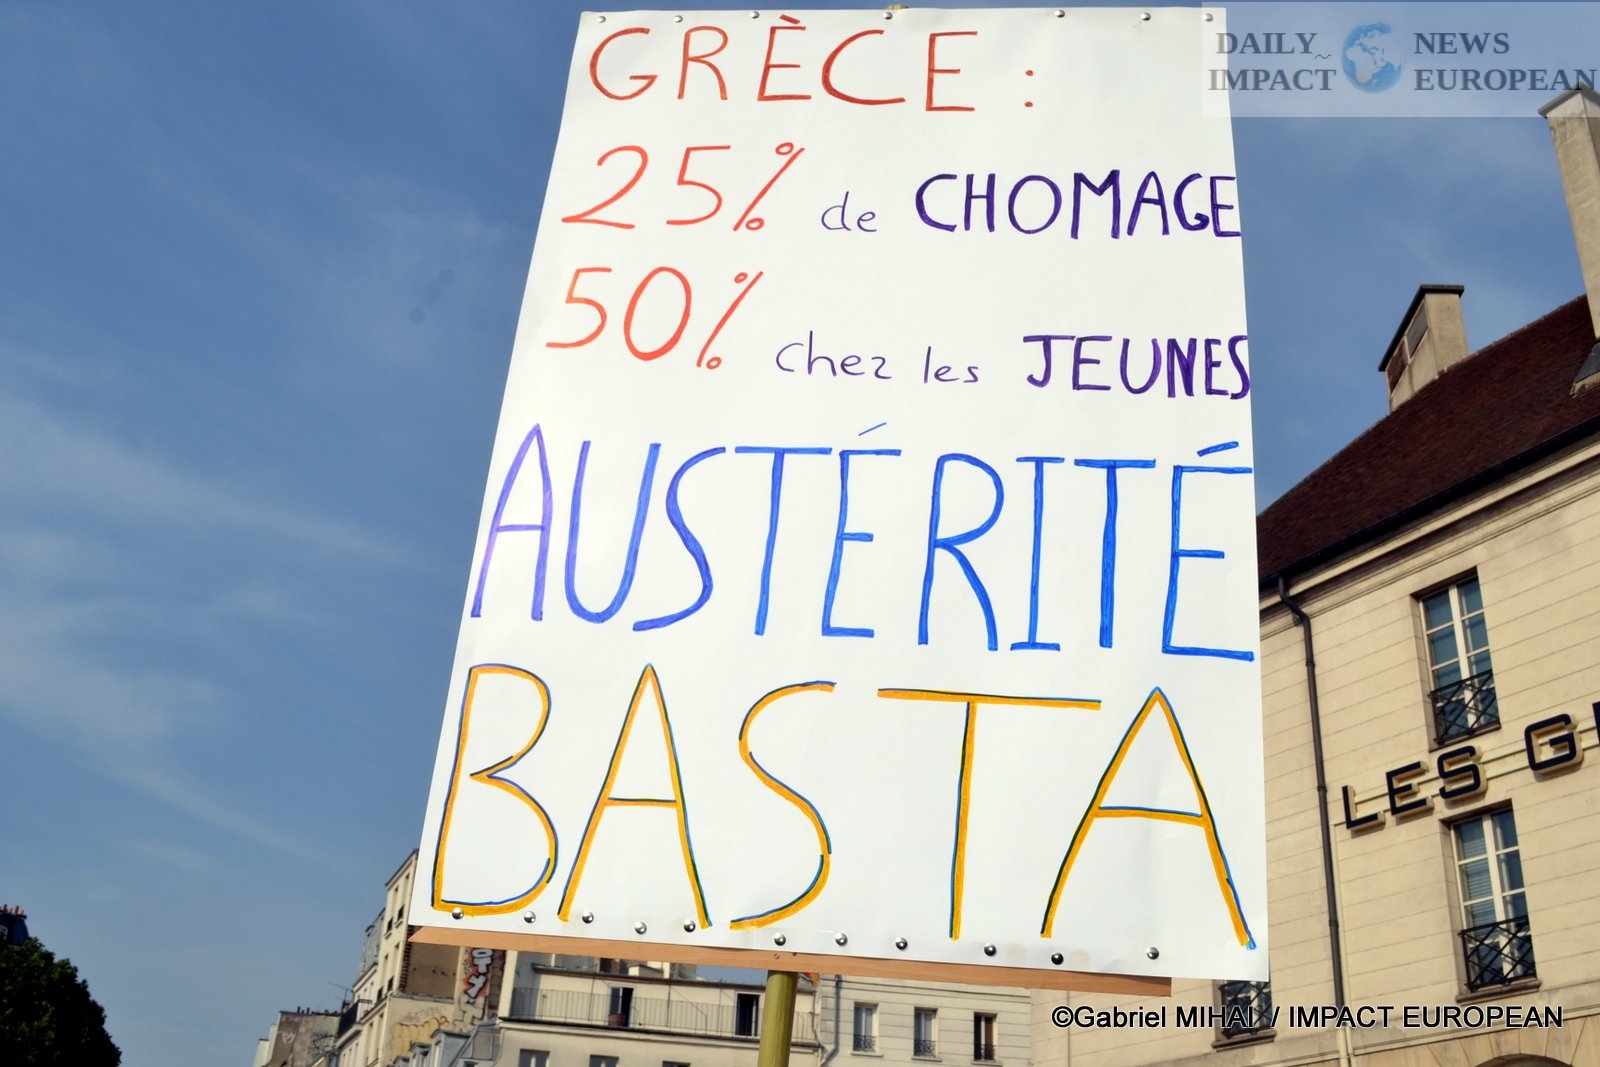 GRÈCE :
25% de CHOMAGE
50% chez les JEUNES
AUSTÉRITÉ
BASTA
DAILY NEWS
IMPACT EUROPEAN
LES G
©Gabriel MIHAI / IMPACT EUROPEAN